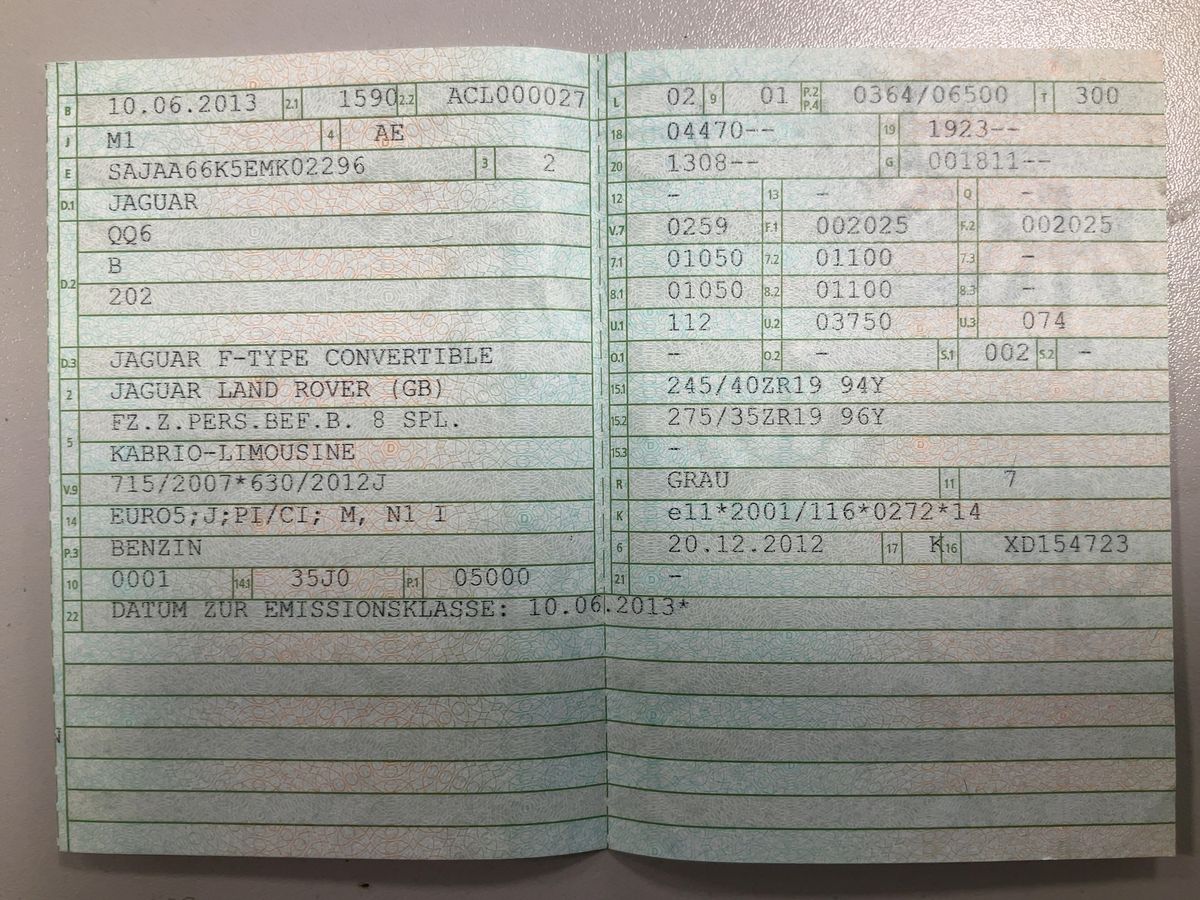 B 10.06.2013 2.1 1590 2.2 ACL000027
J M1 4 AE
E SAJAA66K5EMK02296 3 2
D.1 JAGUAR
QQ6
D.2 B
202
D.3 JAGUAR F-TYPE CONVERTIBLE
2 JAGUAR LAND ROVER (GB)
FZ.Z.PERS.BEF.B. 8 SPL.
5 KABRIO-LIMOUSINE
V.9 715/2007*630/2012J
14 EURO5;J;PI/CI; M, N1 I
P.3 BENZIN
10 0001 14.1 35J0 P.1 05000
22 DATUM ZUR EMISSIONSKLASSE: 10.06.2013*
L 02 9 01 P.2 P.4 0364/06500 T 300
18 04470-- 19 1923--
20 1308-- G 001811--
12 - 13 - Q -
V.7 0259 F.1 002025 F.2 002025
7.1 01050 7.2 01100 7.3 -
8.1 01050 8.2 01100 8.3 -
U.1 112 U.2 03750 U.3 074
O.1 - O.2 - S.1 002 S.2 -
15.1 245/40ZR19 94Y
15.2 275/35ZR19 96Y
15.3 -
R GRAU 11 7
K e11*2001/116*0272*14
6 20.12.2012 17 K 16 XD154723
21 -